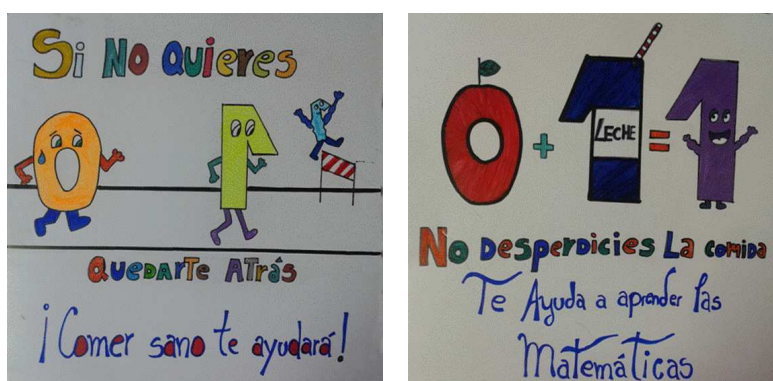 Si No Quieres
0 1
Quedarte Atrás
¡Comer sano te ayudará!
0 + 1 = 1
LECHE
No Desperdicies La comida
Te Ayuda a aprender las
Matemáticas